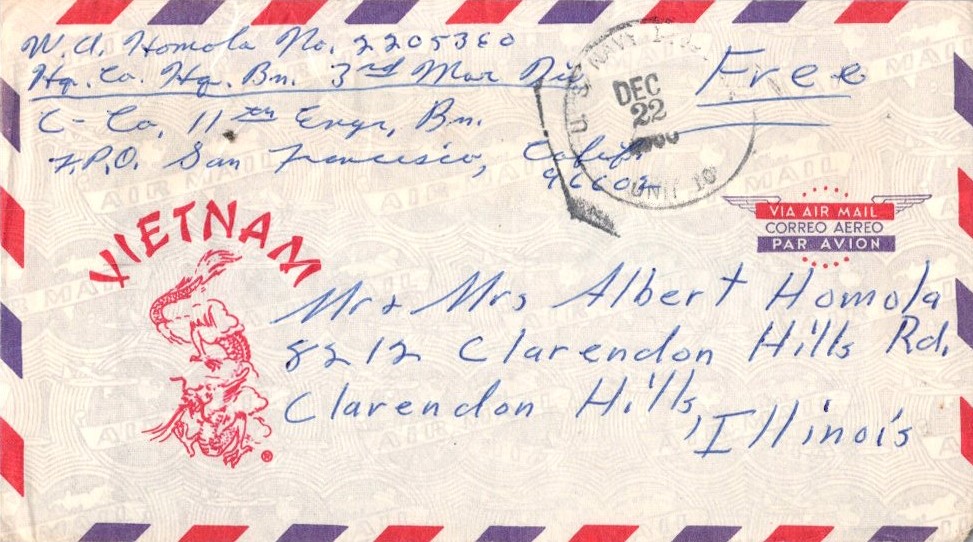 W.A. Homola No. 2205360
Hq. Co. Hq. Bn. 3rd Mar Div
C- Co, 11th Engr, Bn.
F.P.O. San Francisco, Calif.
96602
U.S. NAVY
DEC
22
UNIT 10
Free
VIA AIR MAIL
CORREO AEREO
PAR AVION
VIETNAM
®
Mr & Mrs Albert Homola
8212 Clarendon Hills Rd.
Clarendon Hills,
Illinois